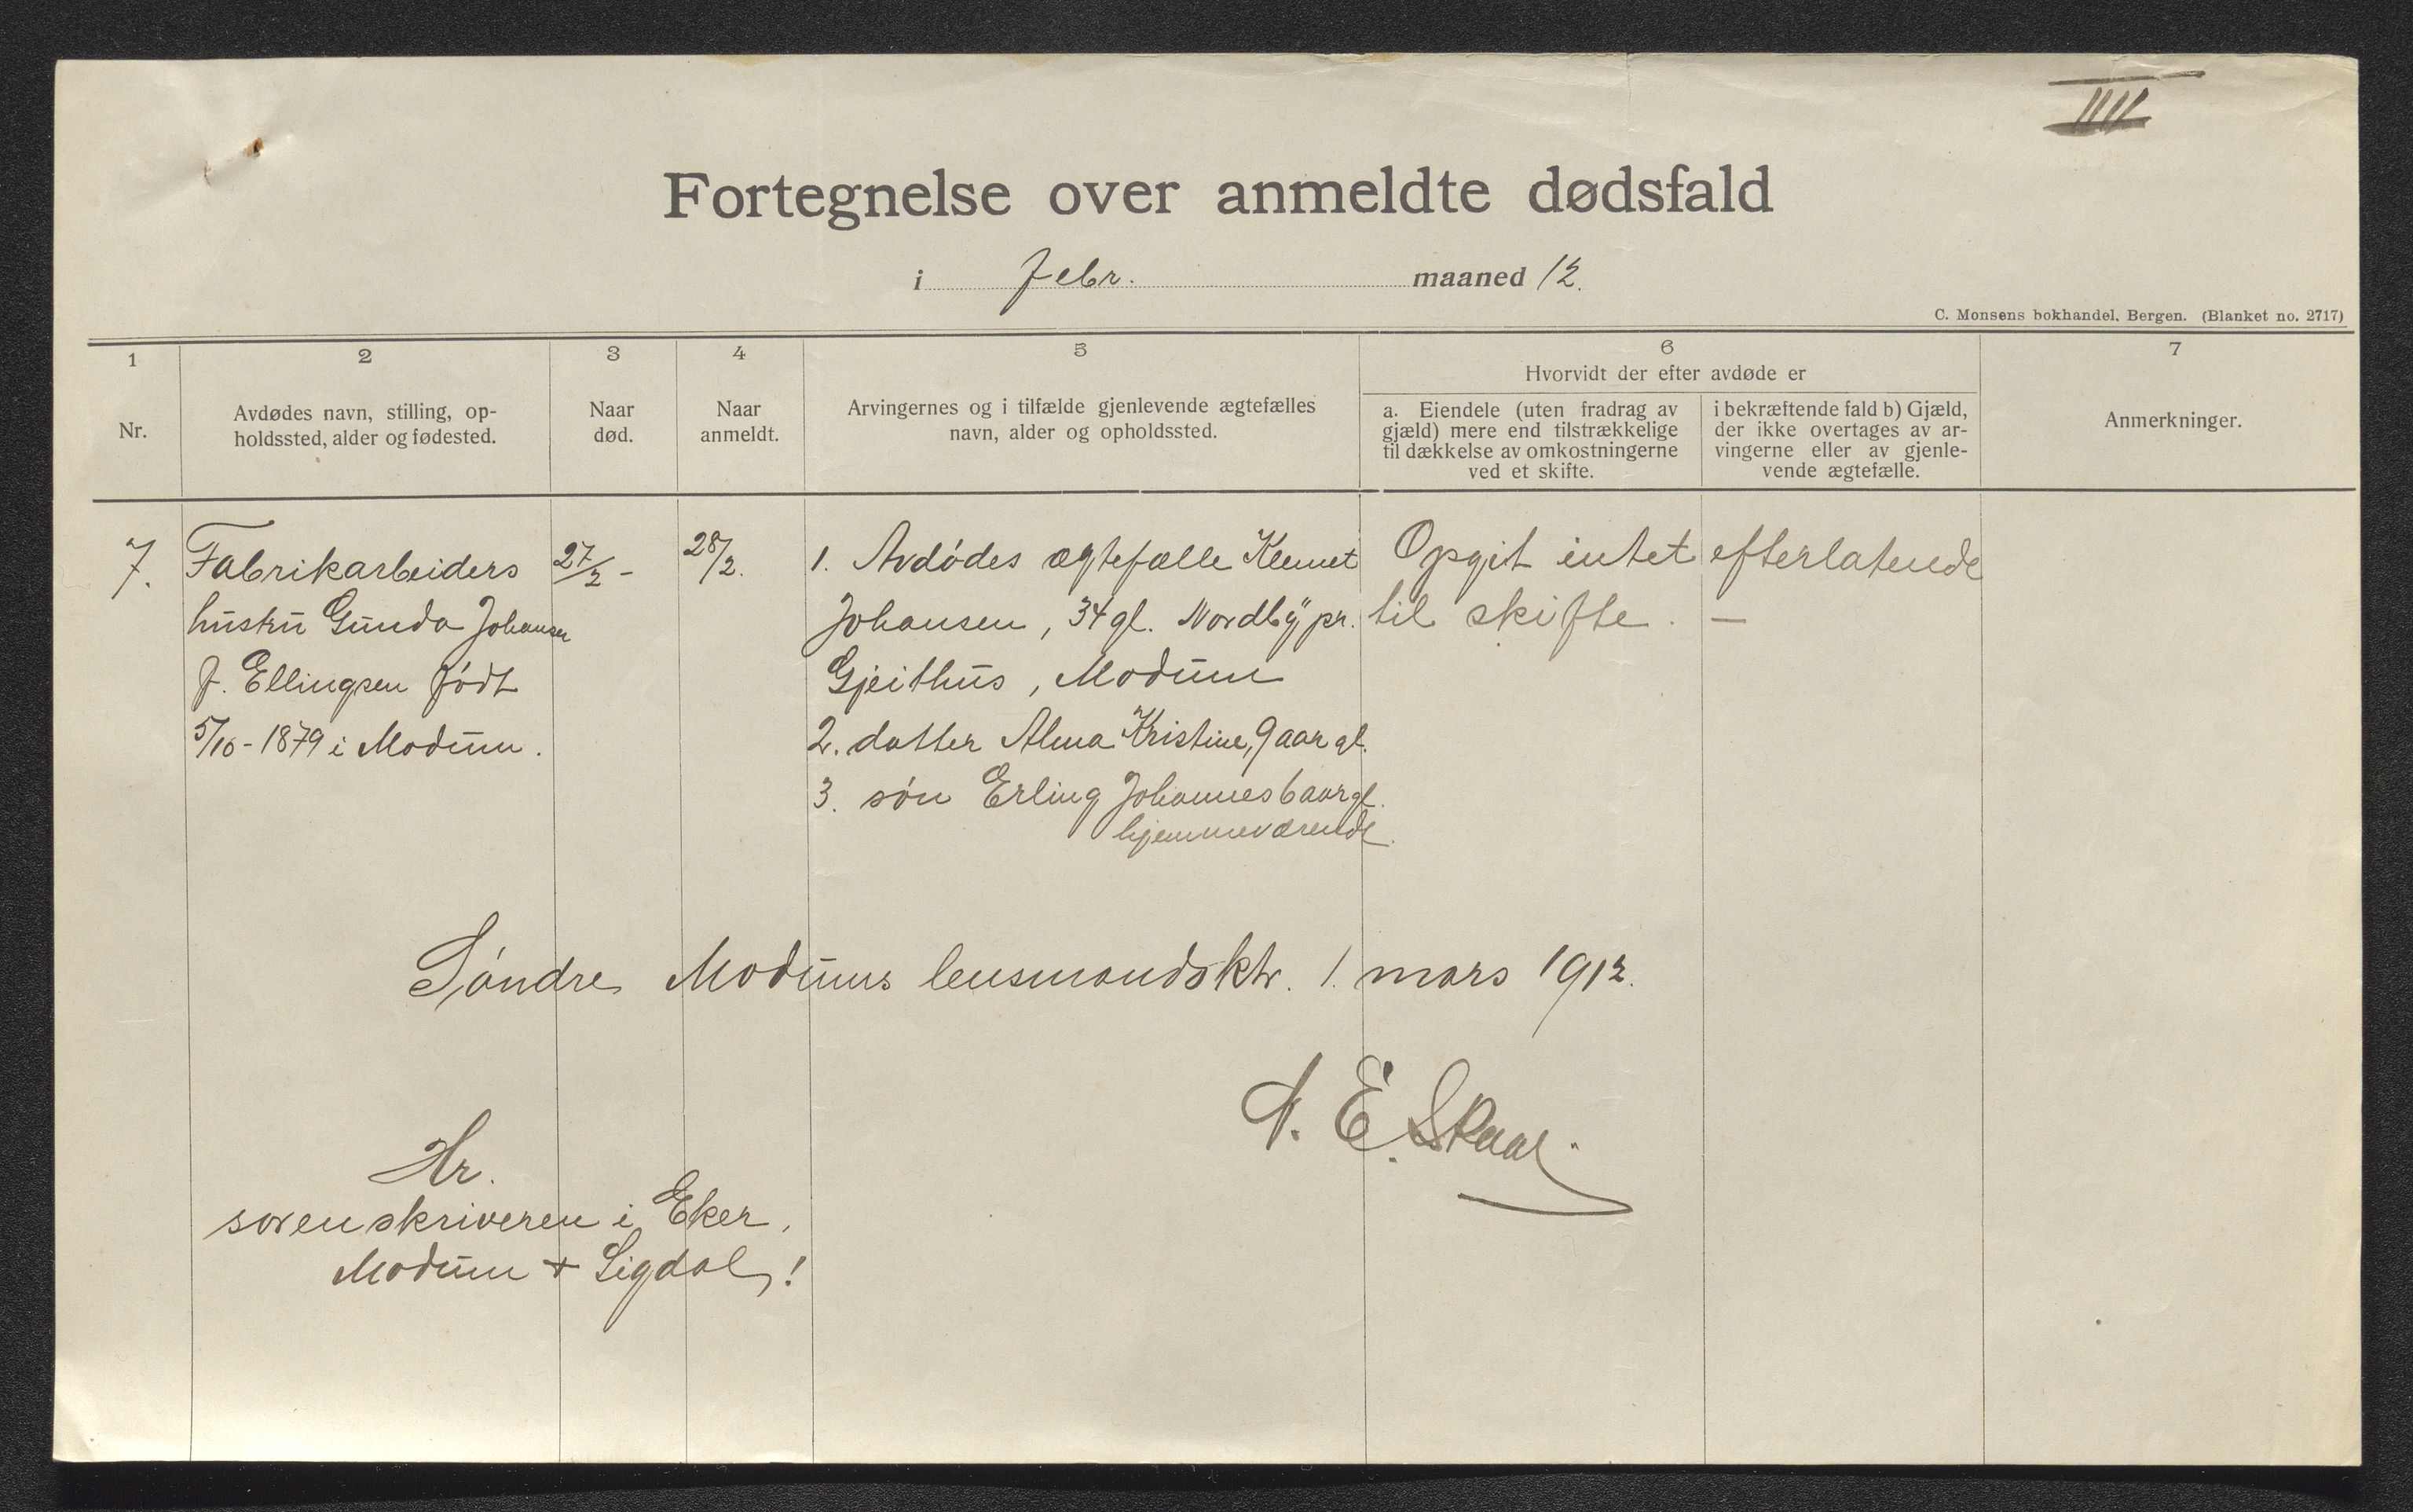 IIII
Fortegnelse over anmeldte dødsfald
i Febr. maaned 12.
C. Monsens bokhandel, Bergen. (Blanket no. 2717)
1
Nr.
2
Avdødes navn, stilling, op-
holdssted, alder og fødested.
3
Naar
død.
4
Naar
anmeldt.
5
Arvingernes og i tilfælde gjenlevende ægtefælles
navn, alder og opholdssted.
6
Hvorvidt der efter avdøde er
a. Eiendele (uten fradrag av
gjæld) mere end tilstrækkelige
til dækkelse av omkostningerne
ved et skifte.
i bekræftende fald b) Gjæld,
der ikke overtages av ar-
vingerne eller av gjenle-
vende ægtefælle.
7
Anmerkninger.
7.
Fabrikarbeiders
hustru Gunda Johansen
f. Ellingsen født
5/10-1879 i Modum.
27/2 -
28/2.
1. Avdødes ægtefælle Klemet
Johansen, 34 gl. Nordby pr.
Gjeithus, Modum
2. datter Alma Kristine, 9 aar gl.
3. søn Erling Johannes 6 aar gl.
hjemmeværende.
Opgit intet efterlatende
til skifte. —
Søndre Modums lensmandsktr. 1. mars 1912.
A. E. Skaar.
Hr.
sorenskriveren i Eker,
Modum + Sigdal!